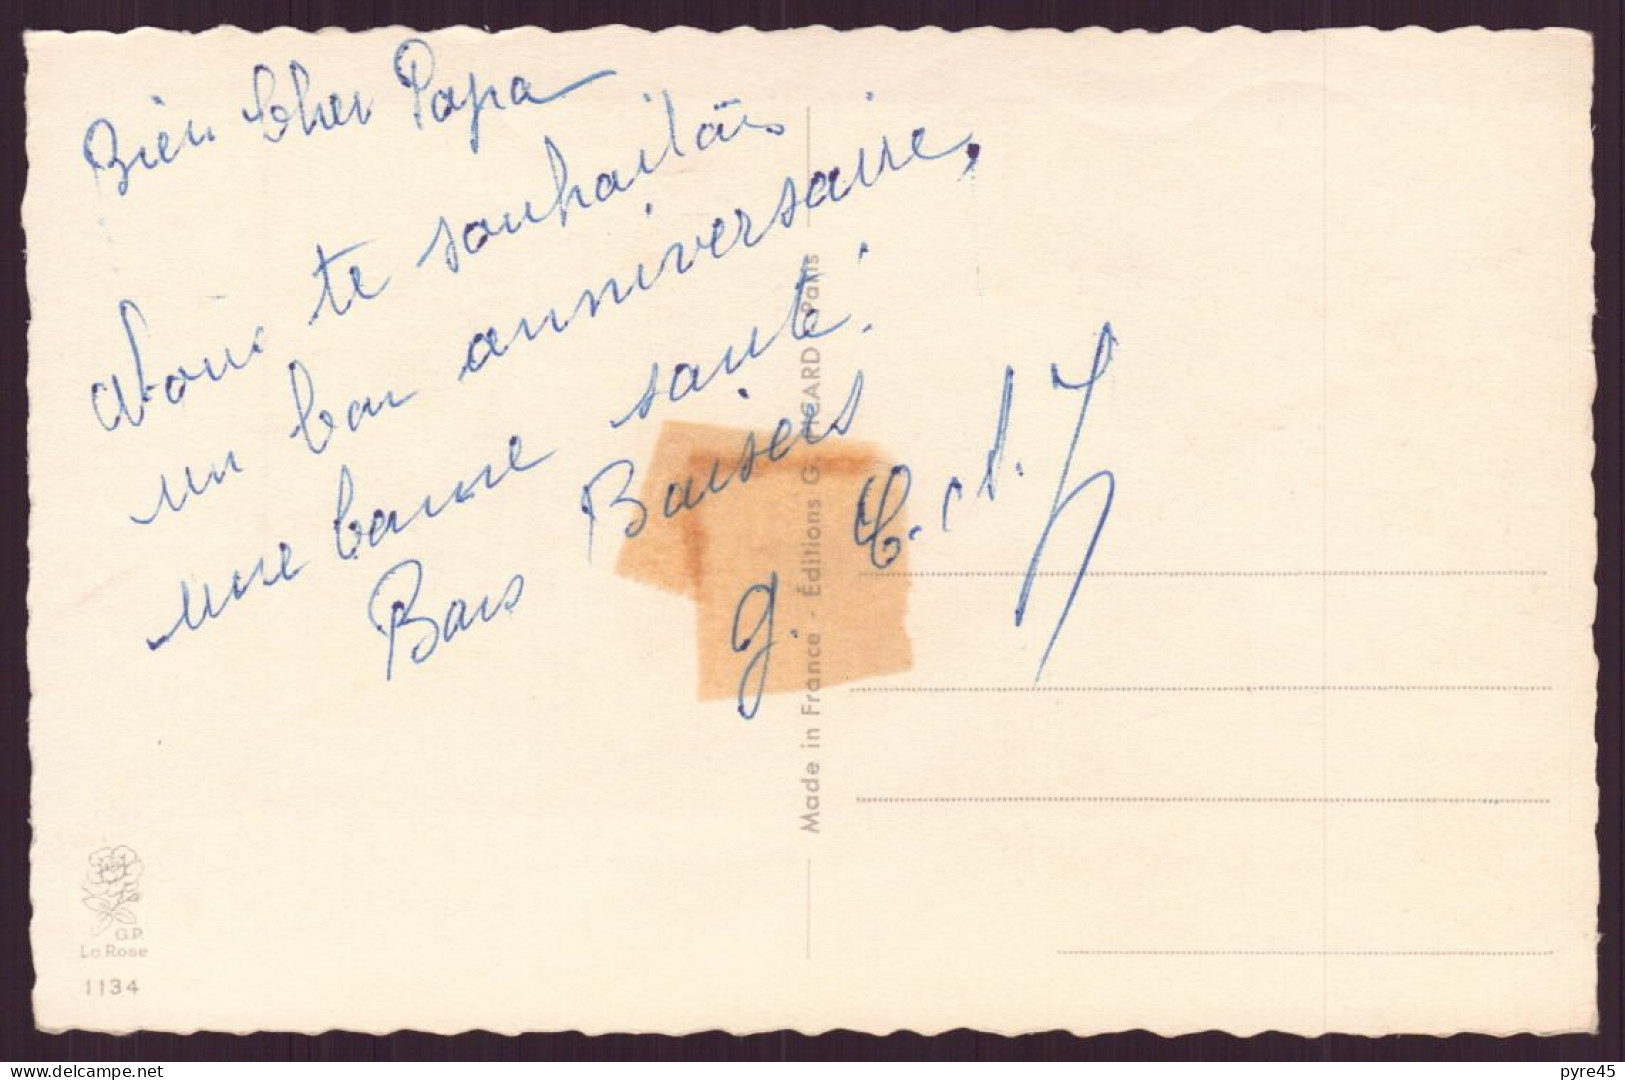 Bien Cher Papa
Nous te souhaitons
un bon anniversaire,
une bonne santé!
Bons Baisers
G.
Made in France - Éditions G. PICARD - Paris
G.P.
La Rose
1134
delcampe.net
pyre45